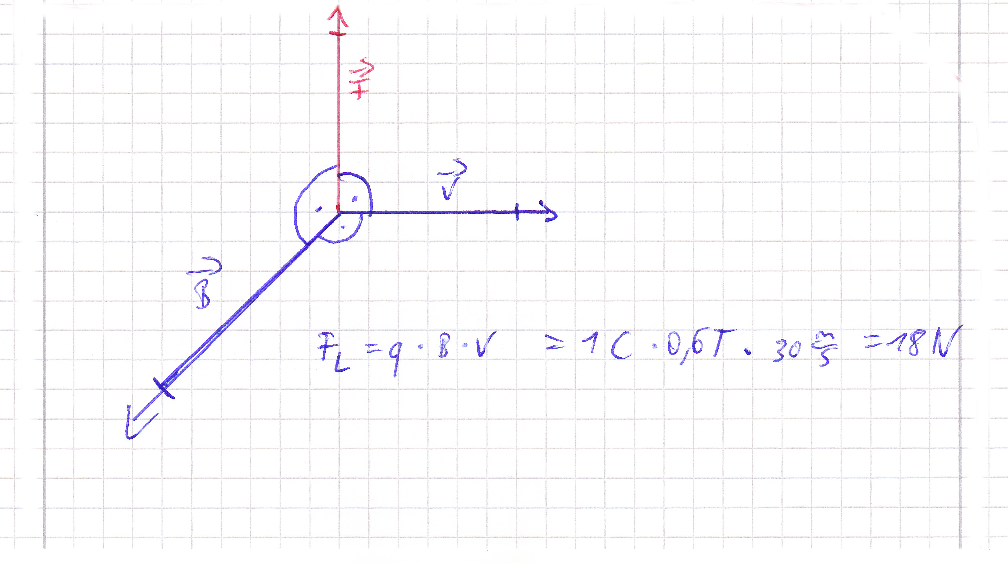 F⃗
v⃗
B⃗
F_L = q · B · v = 1 C · 0,6T · 30 m/s = 18 N